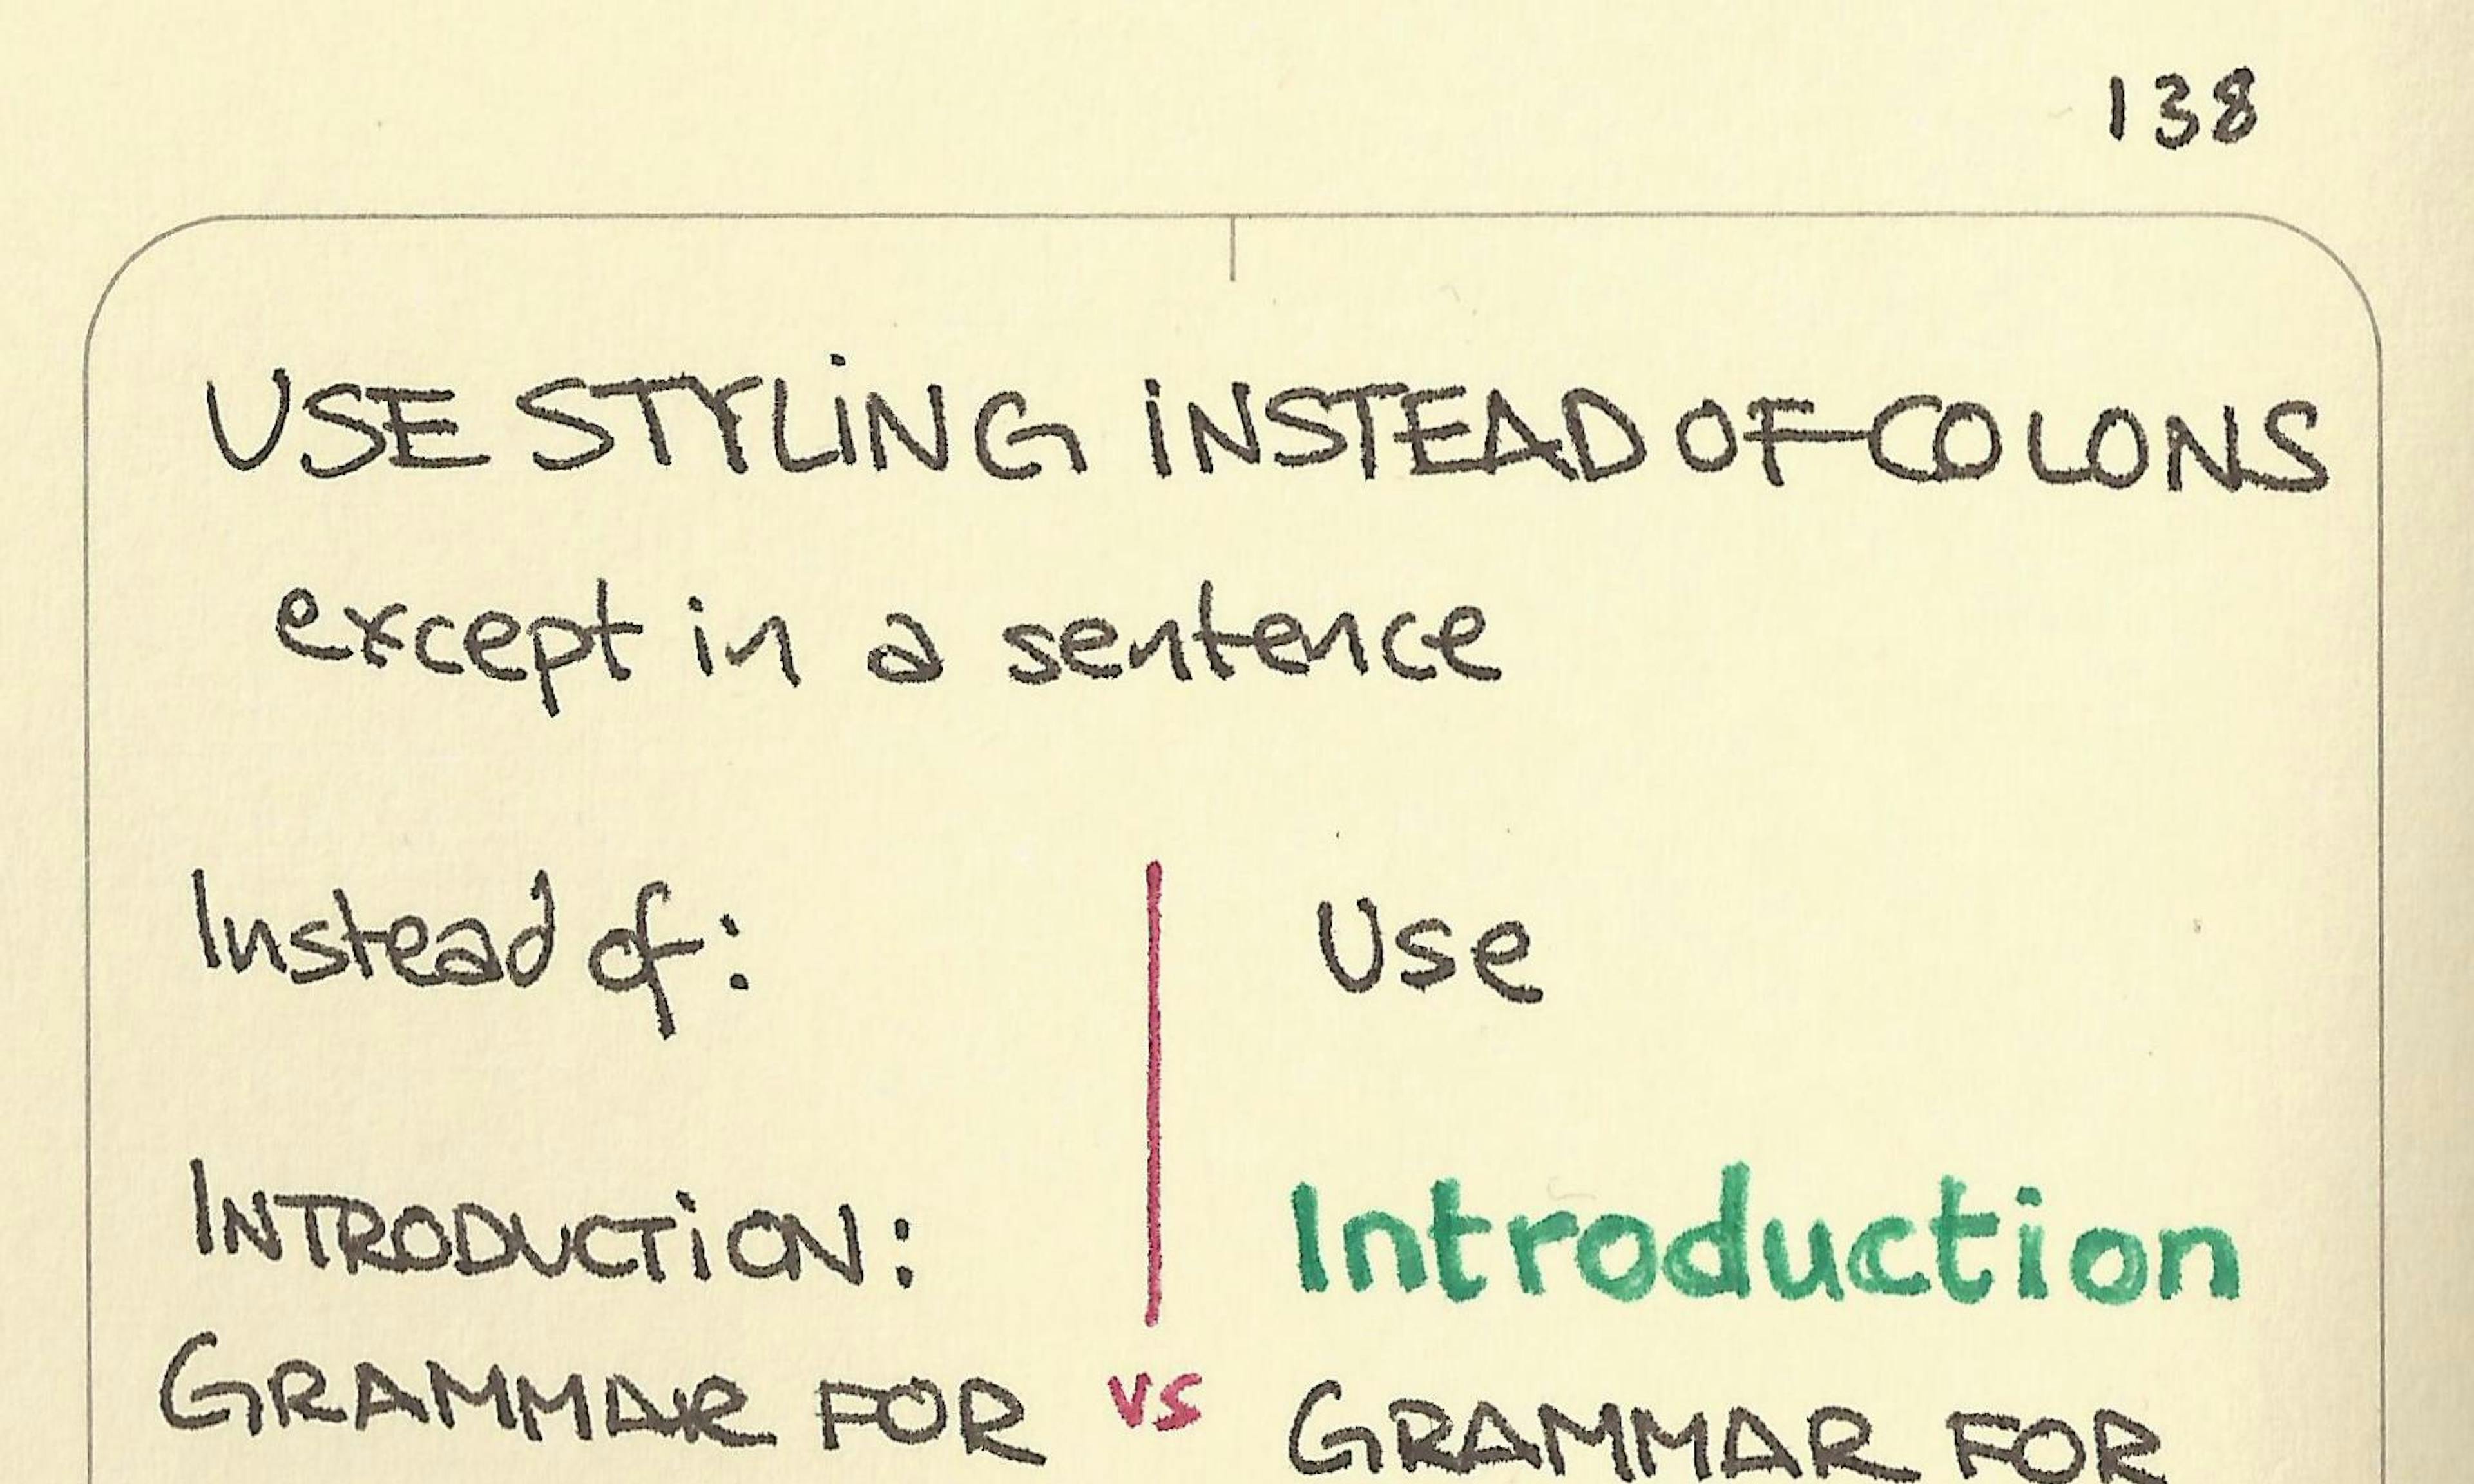 138
USE STYLING INSTEAD OF COLONS
except in a sentence
Instead of:
INTRODUCTION:
GRAMMAR FOR
vs
Use
Introduction
GRAMMAR FOR